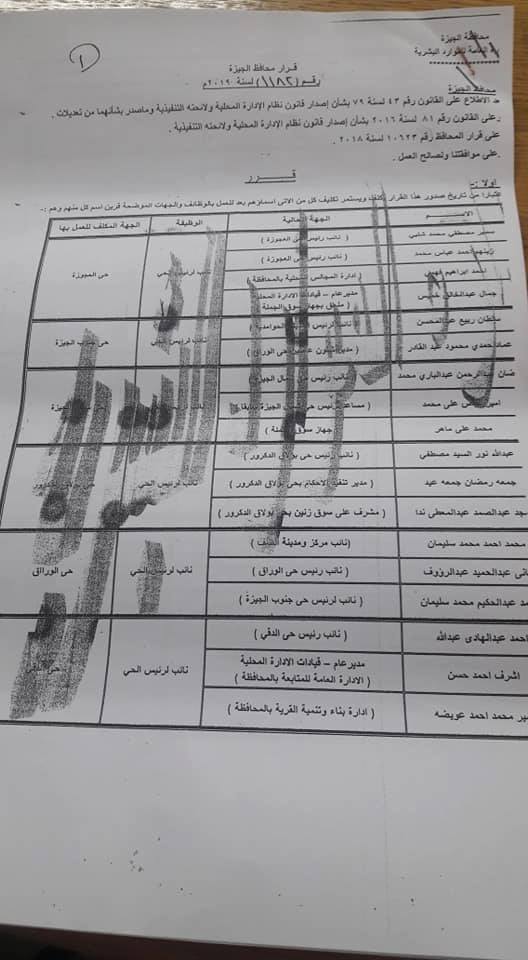 محافظة الجيزة
العامة للموارد البشرية
١
قرار محافظ الجيزة
رقم (١١٨٢) لسنة ٢٠١٩م
محافظ الجيزة
بعد الاطلاع على القانون رقم ٤٣ لسنة ٧٩ بشأن إصدار قانون نظام الإدارة المحلية ولائحته التنفيذية وماصدر بشأنهما من تعديلات .
وعلى القانون رقم ٨١ لسنة ٢٠١٦ بشأن إصدار قانون نظام الإدارة المحلية ولائحته التنفيذية .
على قرار المحافظ رقم ١٠٦٢٣ لسنة ٢٠١٨ .
على موافقتنا ولصالح العمل .
قــــرر
اولا :-
اعتبارا من تاريخ صدور هذا القرار يكلف ويستمر تكليف كل من الاتى اسماؤهم بعد للعمل بالوظائف والجهات الموضحة قرين اسم كل منهم وهم :-
الاســـم الجهة الحالية الوظيفة الجهة المكلف للعمل بها
سمير مصطفي محمد شلبي ( نائب رئيس حي العجوزة ) نائب لرئيس الحي حى العجوزة
زينهم احمد عباس محمد ( نائب رئيس حي العجوزة )
احمد ابراهيم ( ادارة المجالس المحلية بالمحافظة )
جمال عبدالخالق خميس مدير عام – قيادات الادارة المحلية
( ملحق بجهاز سوق الجملة )
سلطان ربيع عبدالمحسن نائب لرئيس الحوامدية ) نائب لرئيس الحي حى جنوب الجيزة
عماد حمدي محمود عبد القادر ( مدير حى الوراق )
عبدالرحمن عبدالباري محمد نائب رئيس حى شمال الجيزة نائب لرئيس الحي الجيزة
امير على محمد ( مساعد رئيس حى الجيزة سابقا
محمد على ماهر جهاز سوق الجملة )
عبدالله نور السيد مصطفي ( نائب رئيس حى بولاق الدكرور ) نائب لرئيس الحي حى بولاق الدكرور
جمعه رمضان جمعه عيد ( مدير تنفيذ الاحكام بحى بولاق الدكرور )
عبد الصمد عبدالمعطى ندا ( مشرف على سوق زنين بحي بولاق الدكرور )
محمد احمد محمد سليمان (نائب مركز ومدينة ) نائب لرئيس الحي حى الوراق
عبدالحميد عبدالرؤوف ( نائب رئيس حى الوراق )
عبدالحكيم محمد سليمان ( نائب لرئيس حي جنوب الجيزة )
احمد عبدالهادى عبدالله ( نائب رئيس حى الدقي ) نائب لرئيس الحي حى الدقي
اشرف احمد حسن مدير عام – قيادات الادارة المحلية
( الادارة العامة للمتابعة بالمحافظة )
محمد احمد عويضه ( ادارة بناء وتنمية القرية بالمحافظة )